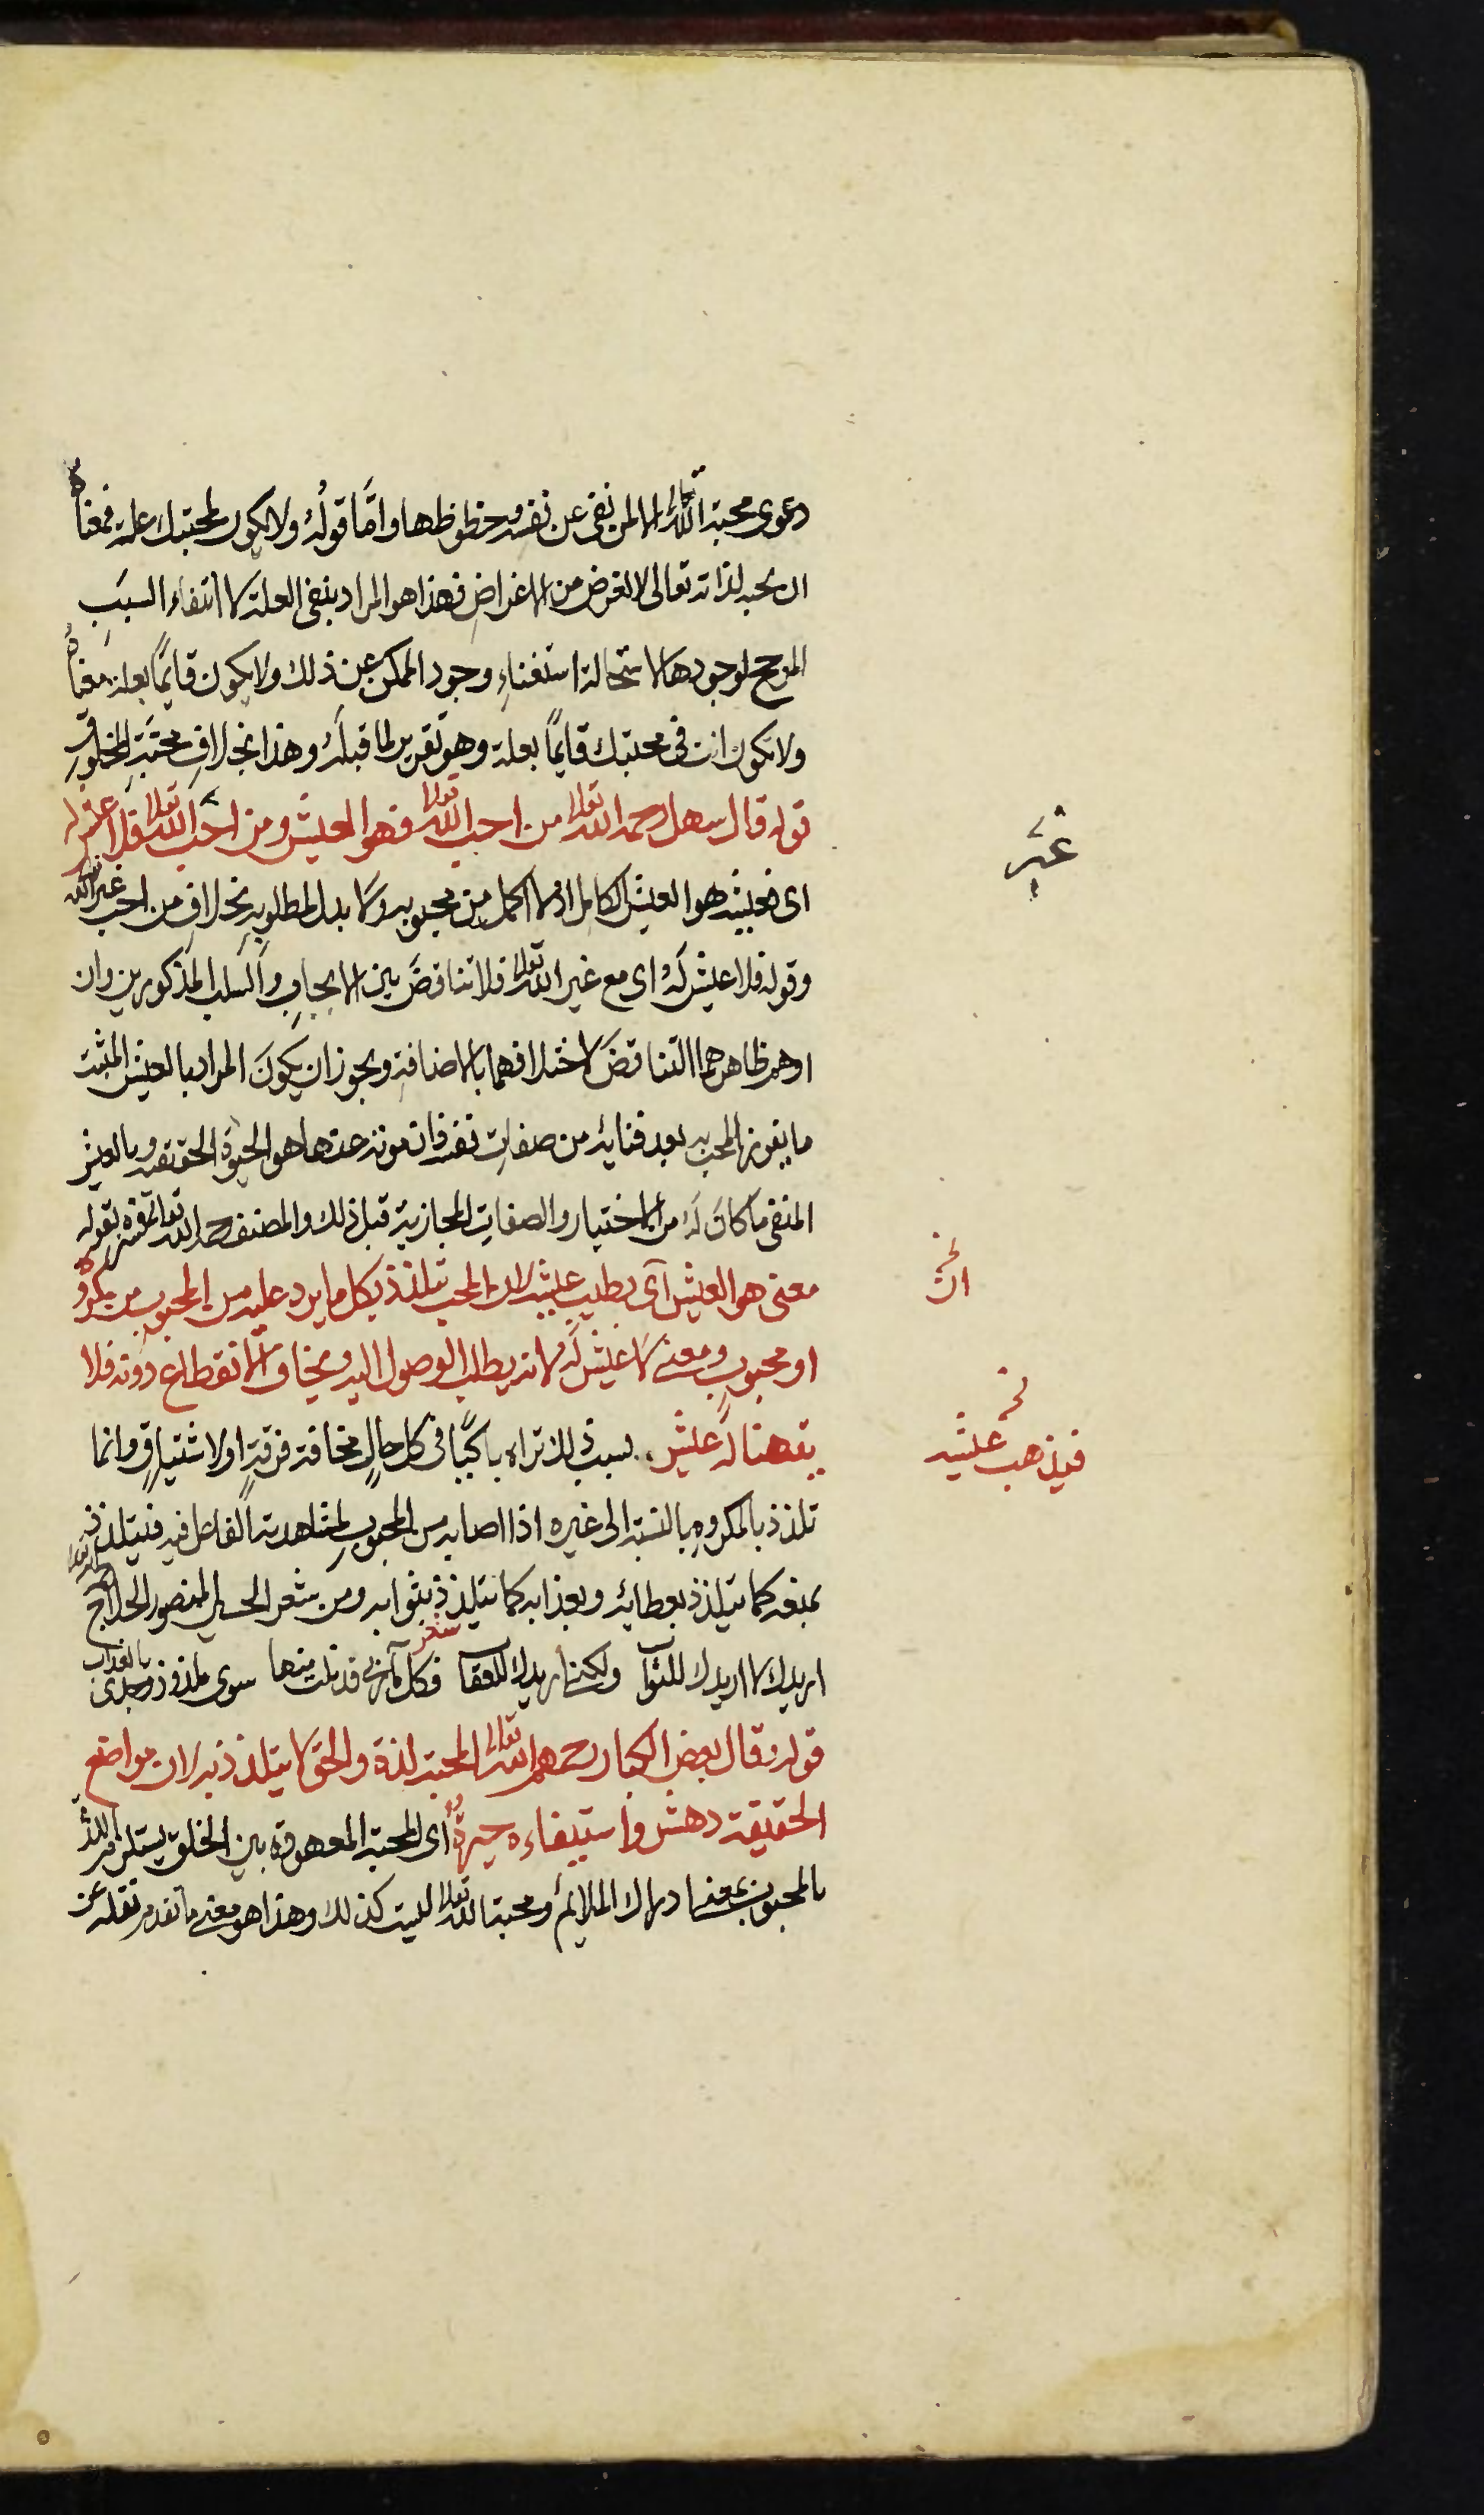 دعوى محبة الله تعالى الا لمن نفى عن نفسه حظوظها وامّا قولُه ولا يكون لمحبتك علة فمعناه
ان يحبه لذاته تعالى لا لغرض من الاغراضِ فهذا هو المراد بنفى العلة لا انتفاء السببِ
المرجح لوجودها لاستحالة استغناءِ وجود الممكن عن ذلك ولا يكون قايمًا بعلة معناهُ
ولا تكون انت فى محبتك قايمًا بعلة وهو تقرير لما قبله وهذا بخلافِ محبَّةِ المخلوقِ
قوله قال سهل رحمه الله تعالى من احب الله تعالى فهو العيش ومن احَب الله تعالى فلا عيش له
اى فعيشه هو العيش الكامل اذ لا اكمل من محبوبه ولا بدل لمطلوبه بخلافِ من احب غير الله
وقوله فلا عيش لَهُ اى مع غير الله تعالى فلا تناقضَ بين الايجابِ والسلب المذكورين وان
اوهم ظاهرهما التناقضَ لاختلافهما بالاضافةِ ويجوز ان يكونَ المراد بالعيش المثبت
ما يفوز المحب به بعد فنايه من صفات نفسه فان موته عنها هو الحيوة الحقيقية وبالعيش
المنفى ما كانَ لَهُ من الاختيار والصفاتِ المجازيةِ قبل ذلك والمصنف رحمه الله تعالى فسره بقوله
معنى هو العيش أى يطيب عيشه لان المحب يتلذذ بكل ما يرد عليه من المحبوب من مكروه
او محبوبٍ ومعنى لا عيش لَه لانه يطلب الوصول اليه ويخاف الانقطاع دونه فلا
يتهنا له عيش بسبب ذلك تراه باكيًا فى كل حالٍ مخافة فرقةٍ اولاشتياقٍ وانما
تلذذ بالمكروهِ بالنسبة الى غيره اذا اصابه من المحبوبِ لمشاهدته الفاعل فيه فيتلذذ
بمنعه كما يتلذذ بعطائه وبعذابه كما يتلذذ بثوابه ومن شعر الحسين المنصور الحلاج رحمه الله تعالى
شعر
اريدك لا اريدك للثواب ولكنى اريدك للعقاب فكل مآربى قد نلت منها سوى ملذوذ وجدى بالعذاب
قوله وقال بعض الكبار رحمهم الله تعالى المحبة لذة والحق لا يتلذذ به لان مواضع
الحقيقة دهش واستيفاء وحيرةٌ أى المحبة المعهودة بين الخلق يستلزم اللذة
بالمحبوب بمعنى ادراك الملايم ومحبة الله تعالى ليست كذلك وهذا هو معنى ما تقدم نقله عن
غير
نخ
ان
نخ
فيذهب عيشه